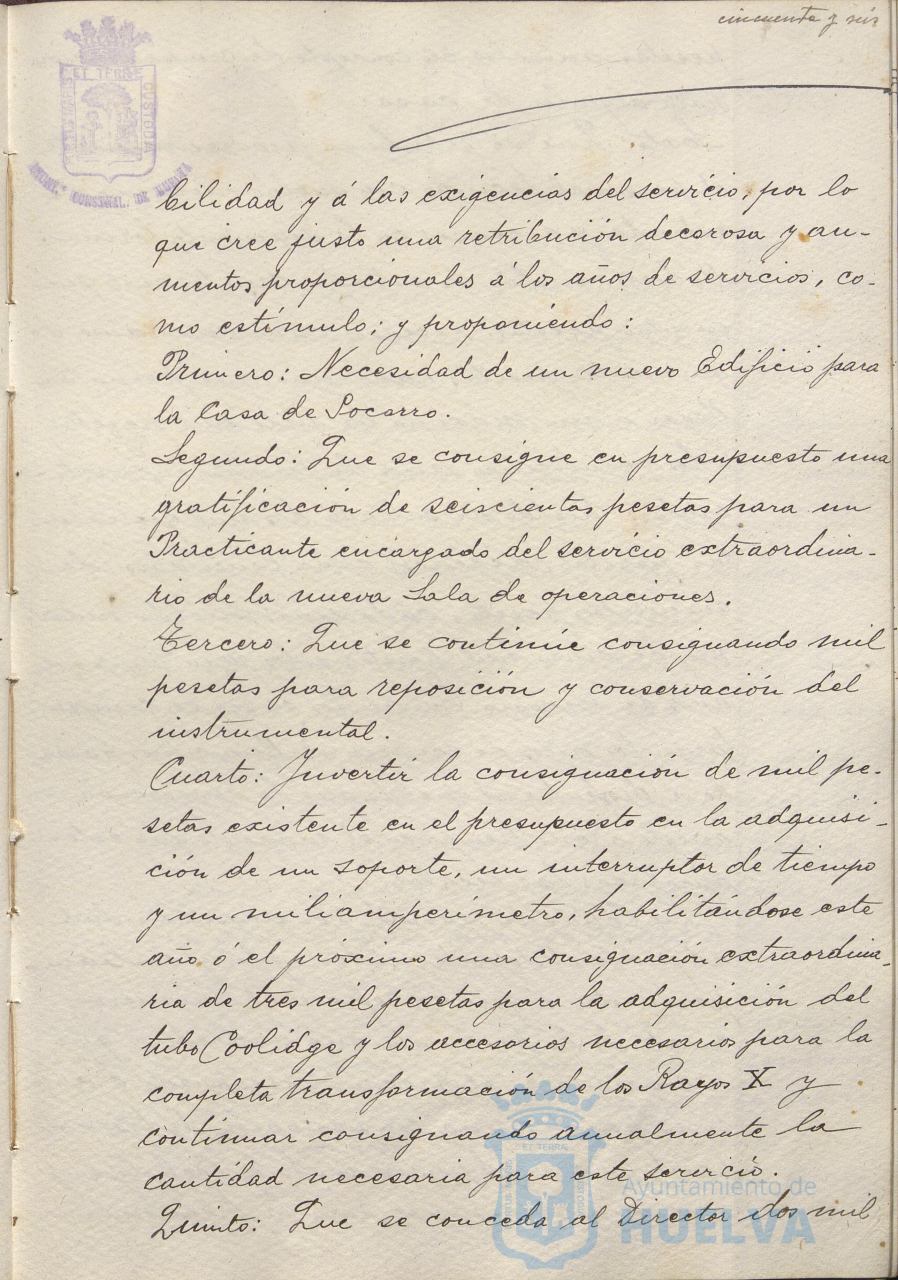 cincuenta y seis
ET TERRAE
CUSTODIA
bilidad y á las exigencias del servicio, por lo
que cree justo una retribución decorosa y au-
mentos proporcionales á los años de servicios, co-
mo estímulo; y proponiendo:
Primero: Necesidad de un nuevo Edificio para
la Casa de Socorro.
Segundo: Que se consigne en presupuesto una
gratificación de seiscientas pesetas para un
Practicante encargado del servicio extraordina-
rio de la nueva Sala de operaciones.
Tercero: Que se continúe consignando mil
pesetas para reposición y conservación del
instrumental.
Cuarto: Invertir la consignación de mil pe-
setas existente en el presupuesto en la adquisi-
ción de un soporte, un interruptor de tiempo
y un miliamperímetro, habilitándose este
año ó el próximo una consignación extraordina-
ria de tres mil pesetas para la adquisición del
tubo Coolidge y los accesorios necesarios para la
completa transformación de los Rayos X y
continuar consignando anualmente la
cantidad necesaria para este servicio.
Quinto: Que se conceda al Director dos mil
Ayuntamiento de
HUELVA